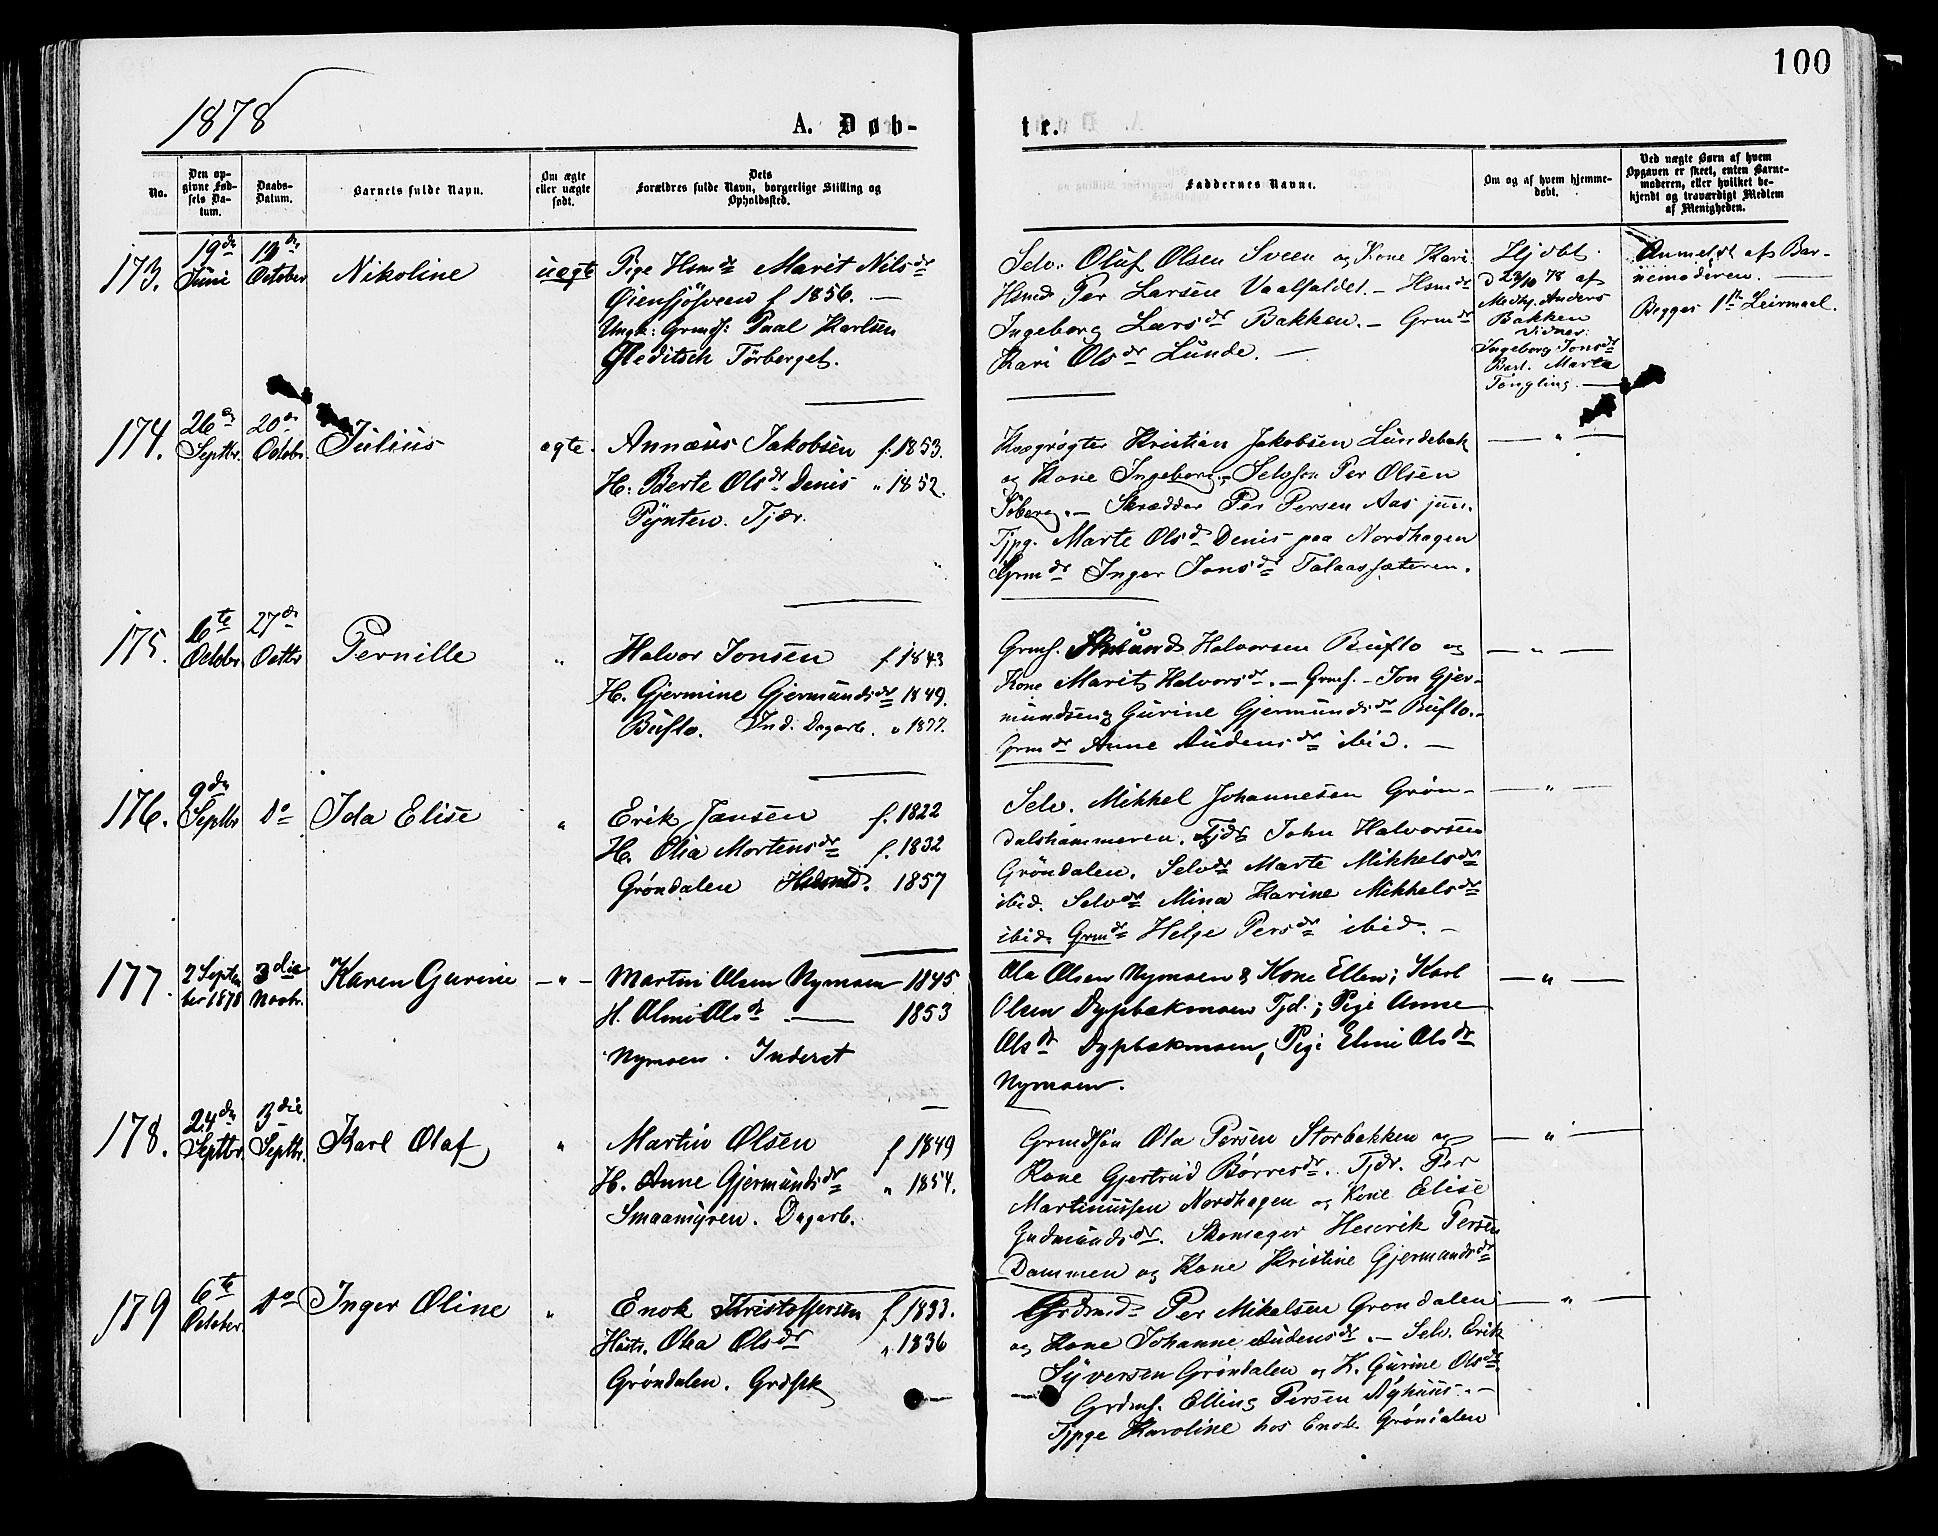 100
1878
A. Døb-
te.
No.
Den op-
givne Fød-
sels Da-
tum.
Daabs-
Datum.
Barnets fulde Navn.
Om ægte
eller uægte
født.
Dets
Forældres fulde Navn, borgerlige Stilling og
Opholdssted.
Faddernes Navne.
Om og af hvem hjemme-
døbt.
Ved uægte Børn af hvem
Opgaven er skeet, enten Barne-
moderen, eller hvilket be-
kjendt og troværdigt Medlem
af Menigheden.
173.
19de
Juni
October
Nikoline
uægte
Pige Hsmdr Marit Nilsdr
f 1856. —
Ungk: Grmdf: Paal Karlsen
Gleditsch Törberget.
Selv. Oluf Olsen Sveen og Kone Kari
Hsmd Per Larsen Vaalfaldet. — Hsmdr
Ingeborg Larsdr Bakken. — Grmdr
Kari Olsdr Lunde. —
Hjdbt.
af
Anders
Bakken
Vidner:
Ingeborg Jonsdr
Marta
Tengling. —
Anmeldt af Bar-
nemoderen. —
Begges 1ste Leirmaal.
174.
26de
Septbr.
20de
Octobr.
Julius
ægte.
Annæus Jakobsen f. 1853.
H: Berte Olsdr Denis " 1852.
Pynten. Tjdr.
Kvægrøgter Kristian Jakobsen Lundebak
og Kone Ingeborg. — Selvson Per Olsen
Söberg. — Skrædder Per Persen Aas jun.
Tjpg. Marte Olsdr Denis paa Nordhagen
Grmdr Inger Jonsdr Talaassæteren.
— " —
175.
6te
Octobr.
27de
Octbr
Pernille
"
Halvor Jonsen f. 1843
H. Gjermine Gjermundsdr 1849.
Buflo. Ind. Dagarb. " 1877.
Grmf. Amund Halvorsen Buflo og
Kone Marit Halvorsdr. — Grmf. — Jon Gjer-
mundsen og Gurine Gjermundsdr Buflo. —
Grmdr Anne Audensdr ibid. —
— " —
176.
9de
Septbr
do
Ida Elise
"
Erik Jansen f. 1822
H. Olia Mortensdr f. 1832
Grøndalen Husmd. 1857
Selv. Mikkel Johannesen Grøn-
dalshammeren. Tjdr John Halvorsen
Gröndalen. Selvdr Marte Mikkelsdr
ibid. Selvdr Mina Karine Mikkelsdr
ibid. Grmdr Helge Persdr ibid. —
— " —
177.
2 Septem
ber 1878
3die
Novbr.
Karen Gurine
— " —
Martin Olsen Nymoen 1845
H. Olmi Olsdr — 1853
Nymoen. Inderst
Ola Olsen Nymoen & Kone Ellen; Karl
Olsen Dypbækmoen Tjd.; Pige Anne
Olsdr Dypbækmoen, Pige Elmi Olsdr
Nymoen.
— " —
178.
24de
Septbr.
3die
Septbr.
Karl Olaf
"
Martin Olsen f 1849
H. Anne Gjermundsdr " 1854.
Smaamyren. Dagarb.
Grmdsön Ola Persen Storbakken og
Kone Gjertrud Børresdr. Tjdr. Per
Martinussen Nordhagen og Kone Elise
Gudmundsdr. Skomager Henrik Persen
Dammen og Kone Kristine Gjermundsdr
— " —
179
6te
October.
do
Inger Oline
"
Enok Kristoffersen f 1833.
Hustr. Olea Olsdr " 1836
Gröndalen.
Grdmd. Per Mikelsen Grøndalen
og Kone Johanne Audensdr. — Selv. Erik
Syversen Gröndalen og K. Gurine Olsdr
Grdmf. Elling Persen Nyhuus. —
Tjpge Karoline hos Enok Gröndalen
— " —